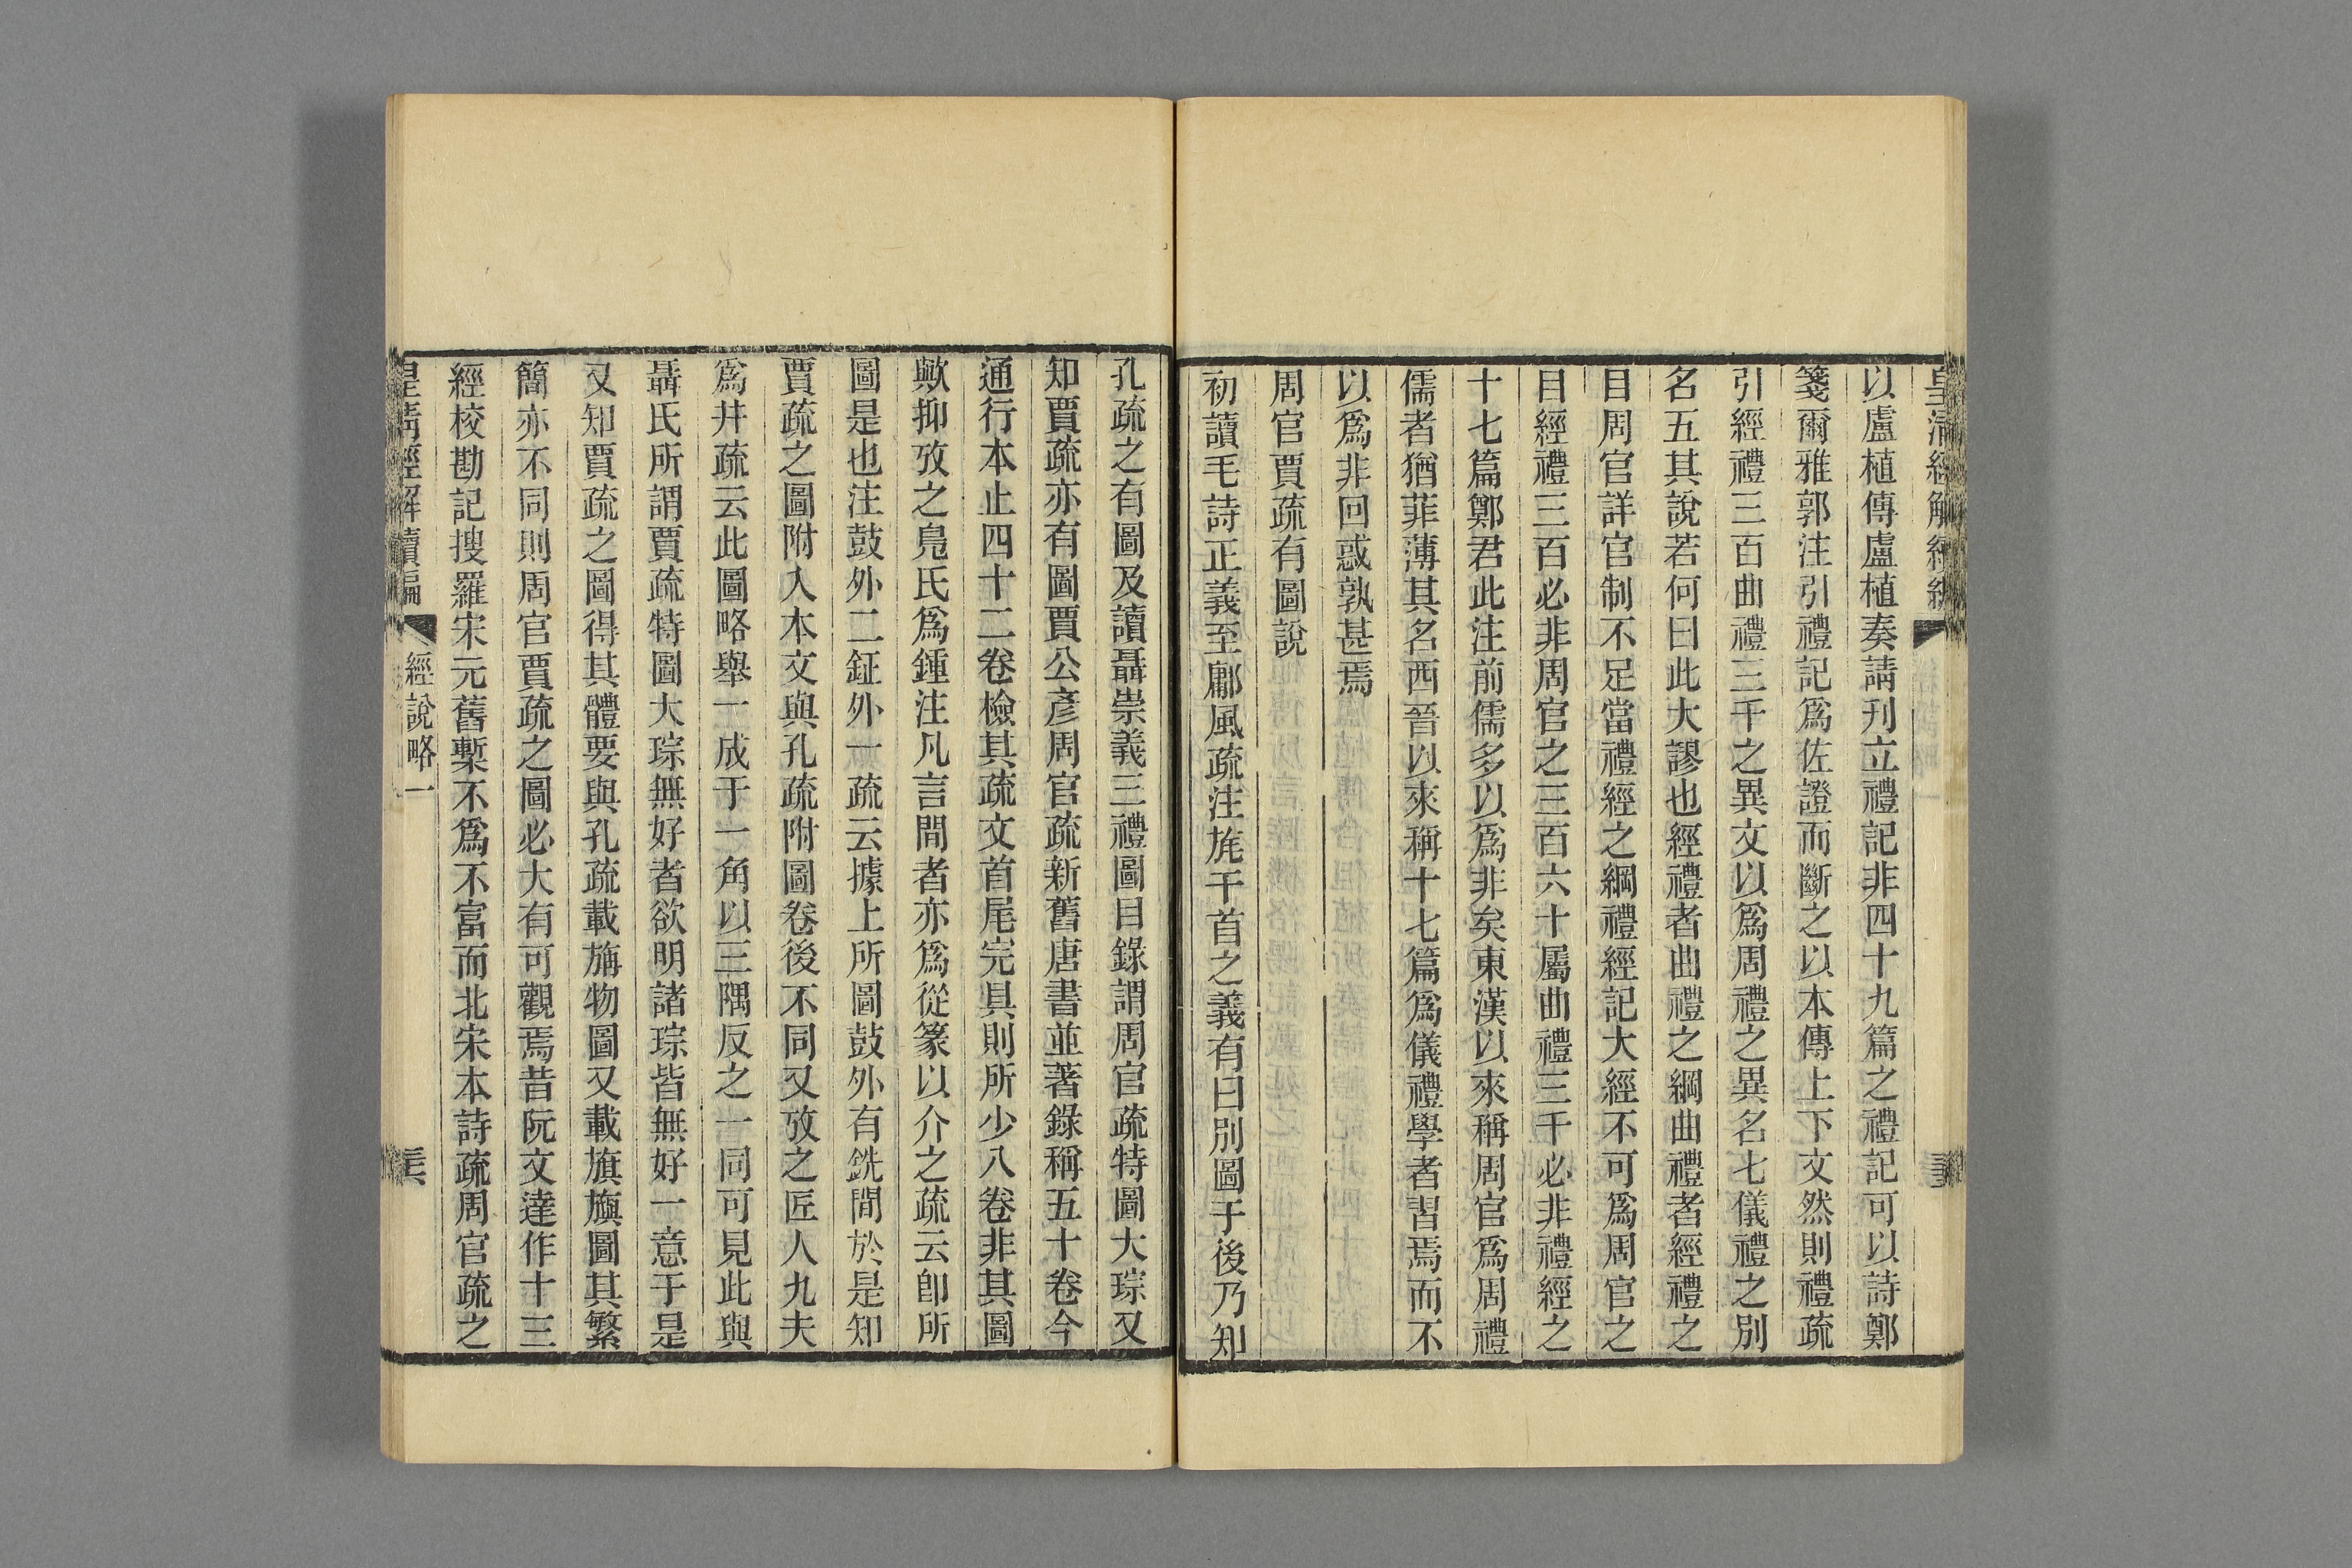 以盧植傳盧植奏請刊立禮記非四十九篇之禮記可以詩鄭
箋爾雅郭注引禮記爲佐證而斷之以本傳上下文然則禮疏
引經禮三百曲禮三千之異文以爲周禮之異名七儀禮之別
名五其說若何曰此大謬也經禮者曲禮之綱曲禮者經禮之
目周官詳官制不足當禮經之綱禮經記大經不可爲周官之
目經禮三百必非周官之三百六十屬曲禮三千必非禮經之
十七篇鄭君此注前儒多以爲非矣東漢以來稱周官爲周禮
儒者猶菲薄其名西晉以來稱十七篇爲儀禮學者習焉而不
以爲非回惑孰甚焉
周官賈疏有圖說
初讀毛詩正義至鄘風疏注旄干首之義有曰別圖于後乃知
孔疏之有圖及讀聶崇義三禮圖目錄謂周官疏特圖大琮又
知賈疏亦有圖賈公彥周官疏新舊唐書並著錄稱五十卷今
通行本止四十二卷檢其疏文首尾完具則所少八卷非其圖
歟抑攷之鳧氏爲鍾注凡言間者亦爲從篆以介之疏云卽所
圖是也注鼓外二鉦外一疏云據上所圖鼓外有銑間於是知
賈疏之圖附入本文與孔疏附圖卷後不同又攷之匠人九夫
爲井疏云此圖略舉一成于一角以三隅反之一同可見此與
聶氏所謂賈疏特圖大琮無好者欲明諸琮皆無好一意于是
又知賈疏之圖得其體要與孔疏載旃物圖又載旗旟圖其繁
簡亦不同則周官賈疏之圖必大有可觀焉昔阮文達作十三
經校勘記搜羅宋元舊槧不爲不富而北宋本詩疏周官疏之
皇清經解續編 經說略一